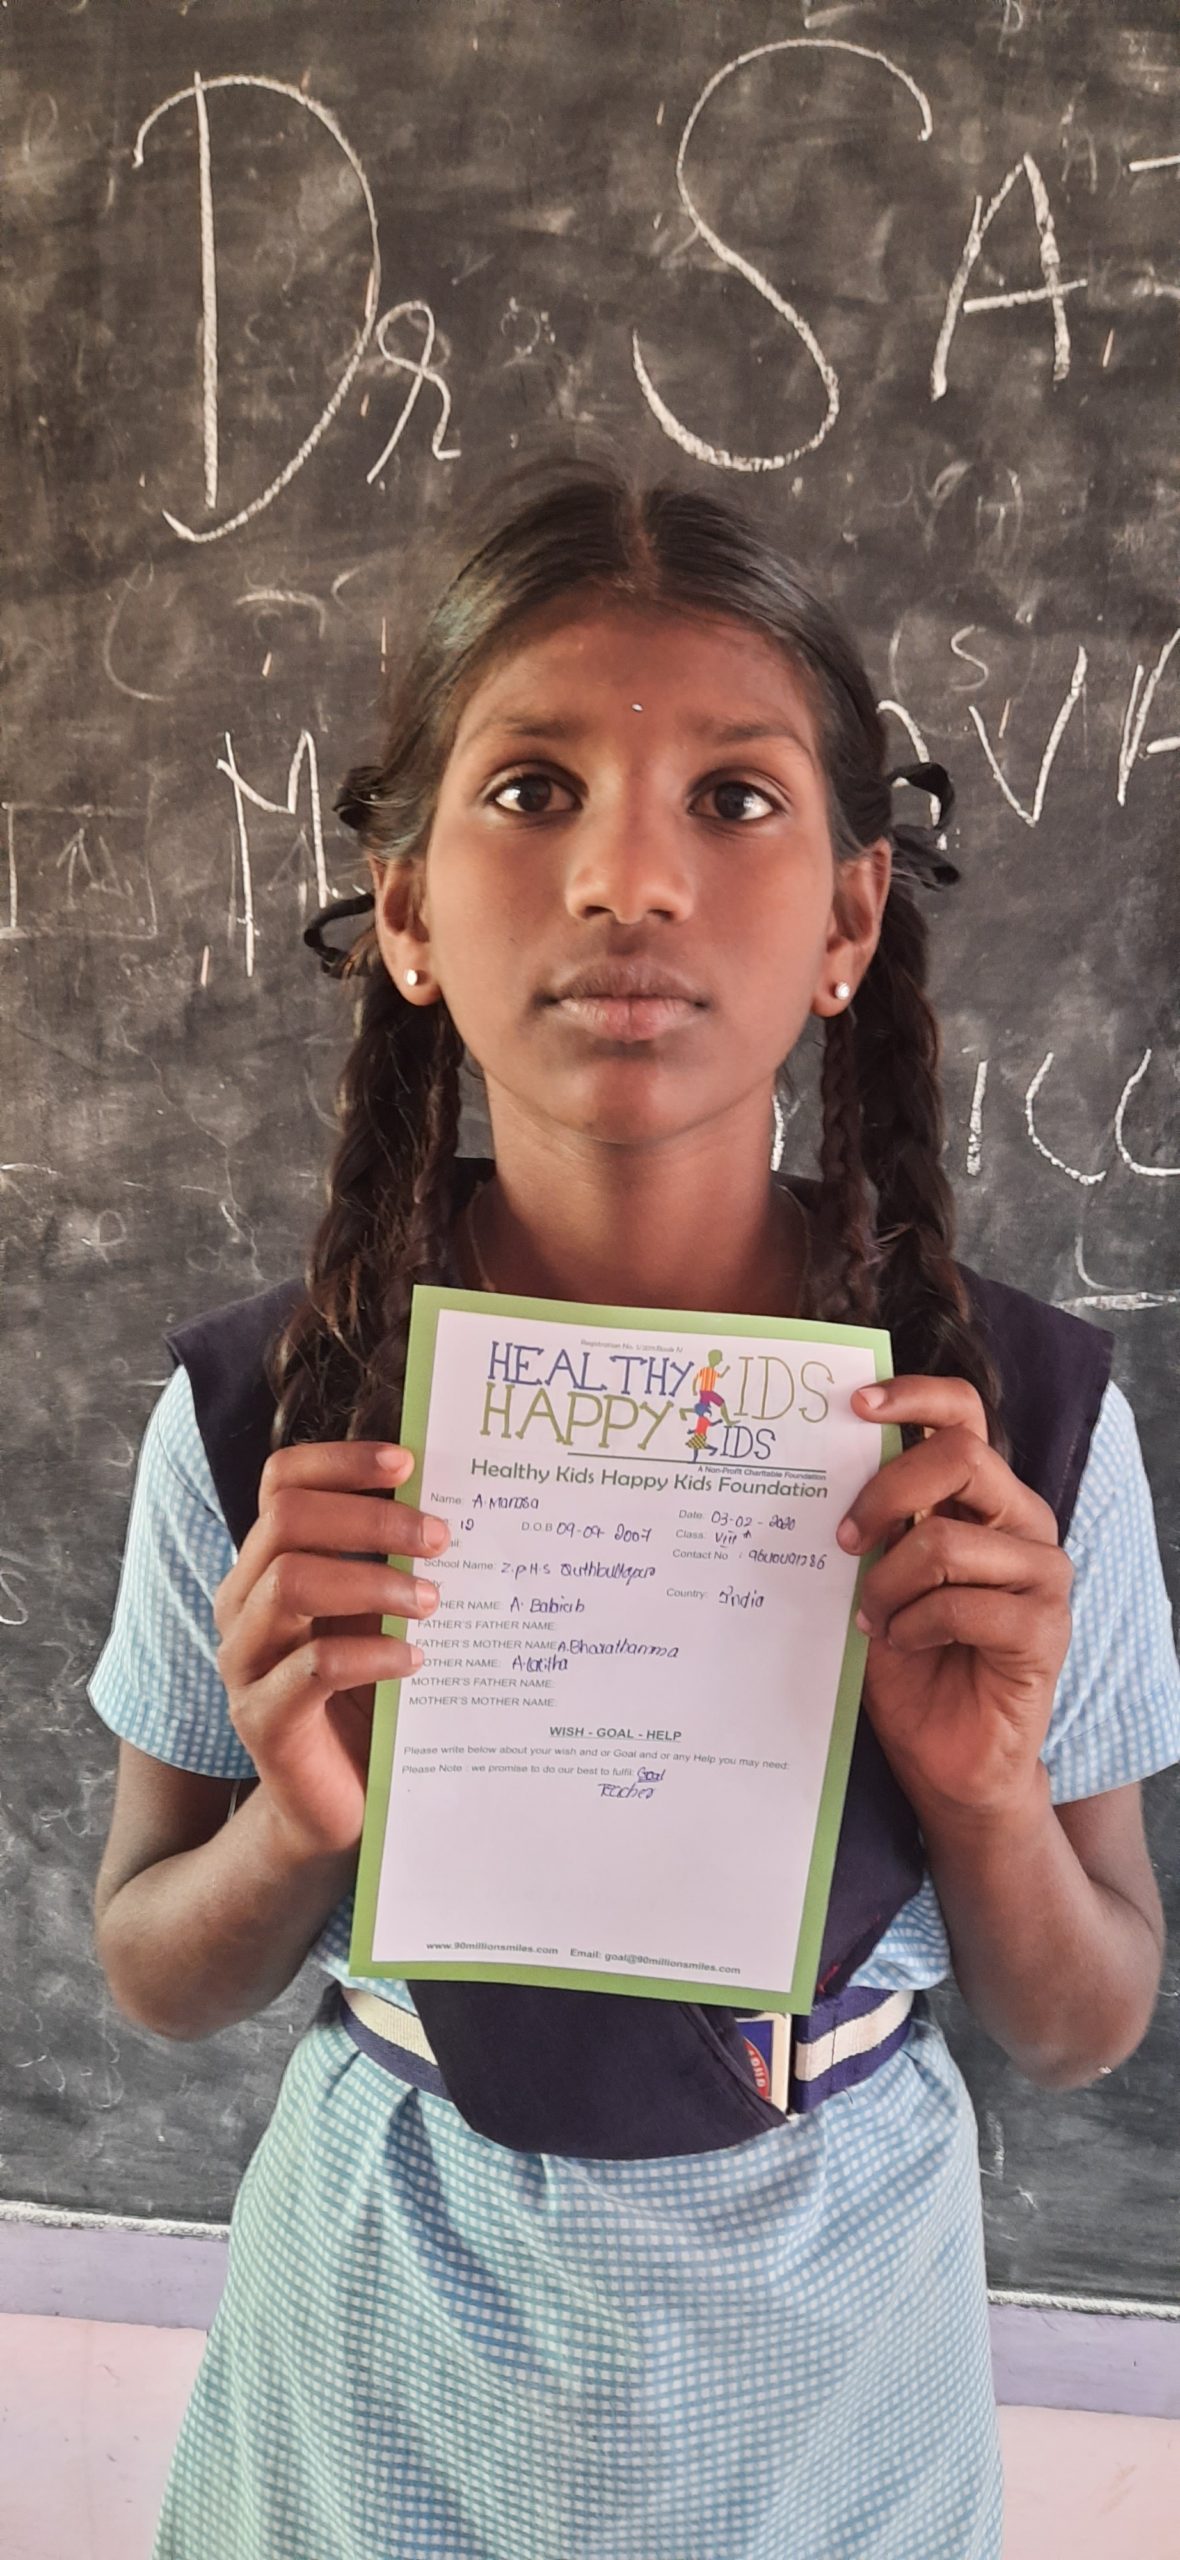 Dr SA
M
VA
ICC
HEALTHY KIDS
HAPPY KIDS
A Non-Profit Charitable Foundation
Healthy Kids Happy Kids Foundation
Name: A. Manasa
Date: 03-02-2020
12 D.O.B 09-09-2007
Class: VIII A
Contact No :
School Name: Z.P.H.S Quthbullapur
Country: India
HER NAME: A. Babiah
FATHER'S FATHER NAME:
FATHER'S MOTHER NAME: A. Bharathamma
OTHER NAME: A. Lalitha
MOTHER'S FATHER NAME:
MOTHER'S MOTHER NAME:
WISH - GOAL - HELP
Please write below about your wish and or Goal and or any Help you may need:
Please Note : we promise to do our best to fulfil: Goal
Teacher
www.90millionsmiles.com Email: goal@90millionsmiles.com